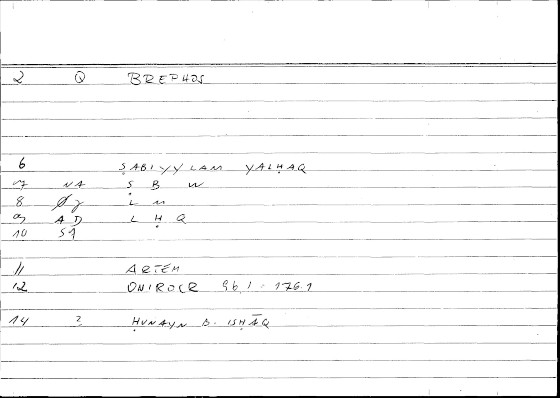 2 Q BREPHOS
6 ṢABIYY LAM YALḤAQ
7 NA Ṣ B W
8 L M
9 AD L Ḥ Q
10 SA
11 ARTEM
12 ONIROCR 96.1 - 176.1
14 ? ḤUNAYN B. ISḤĀQ